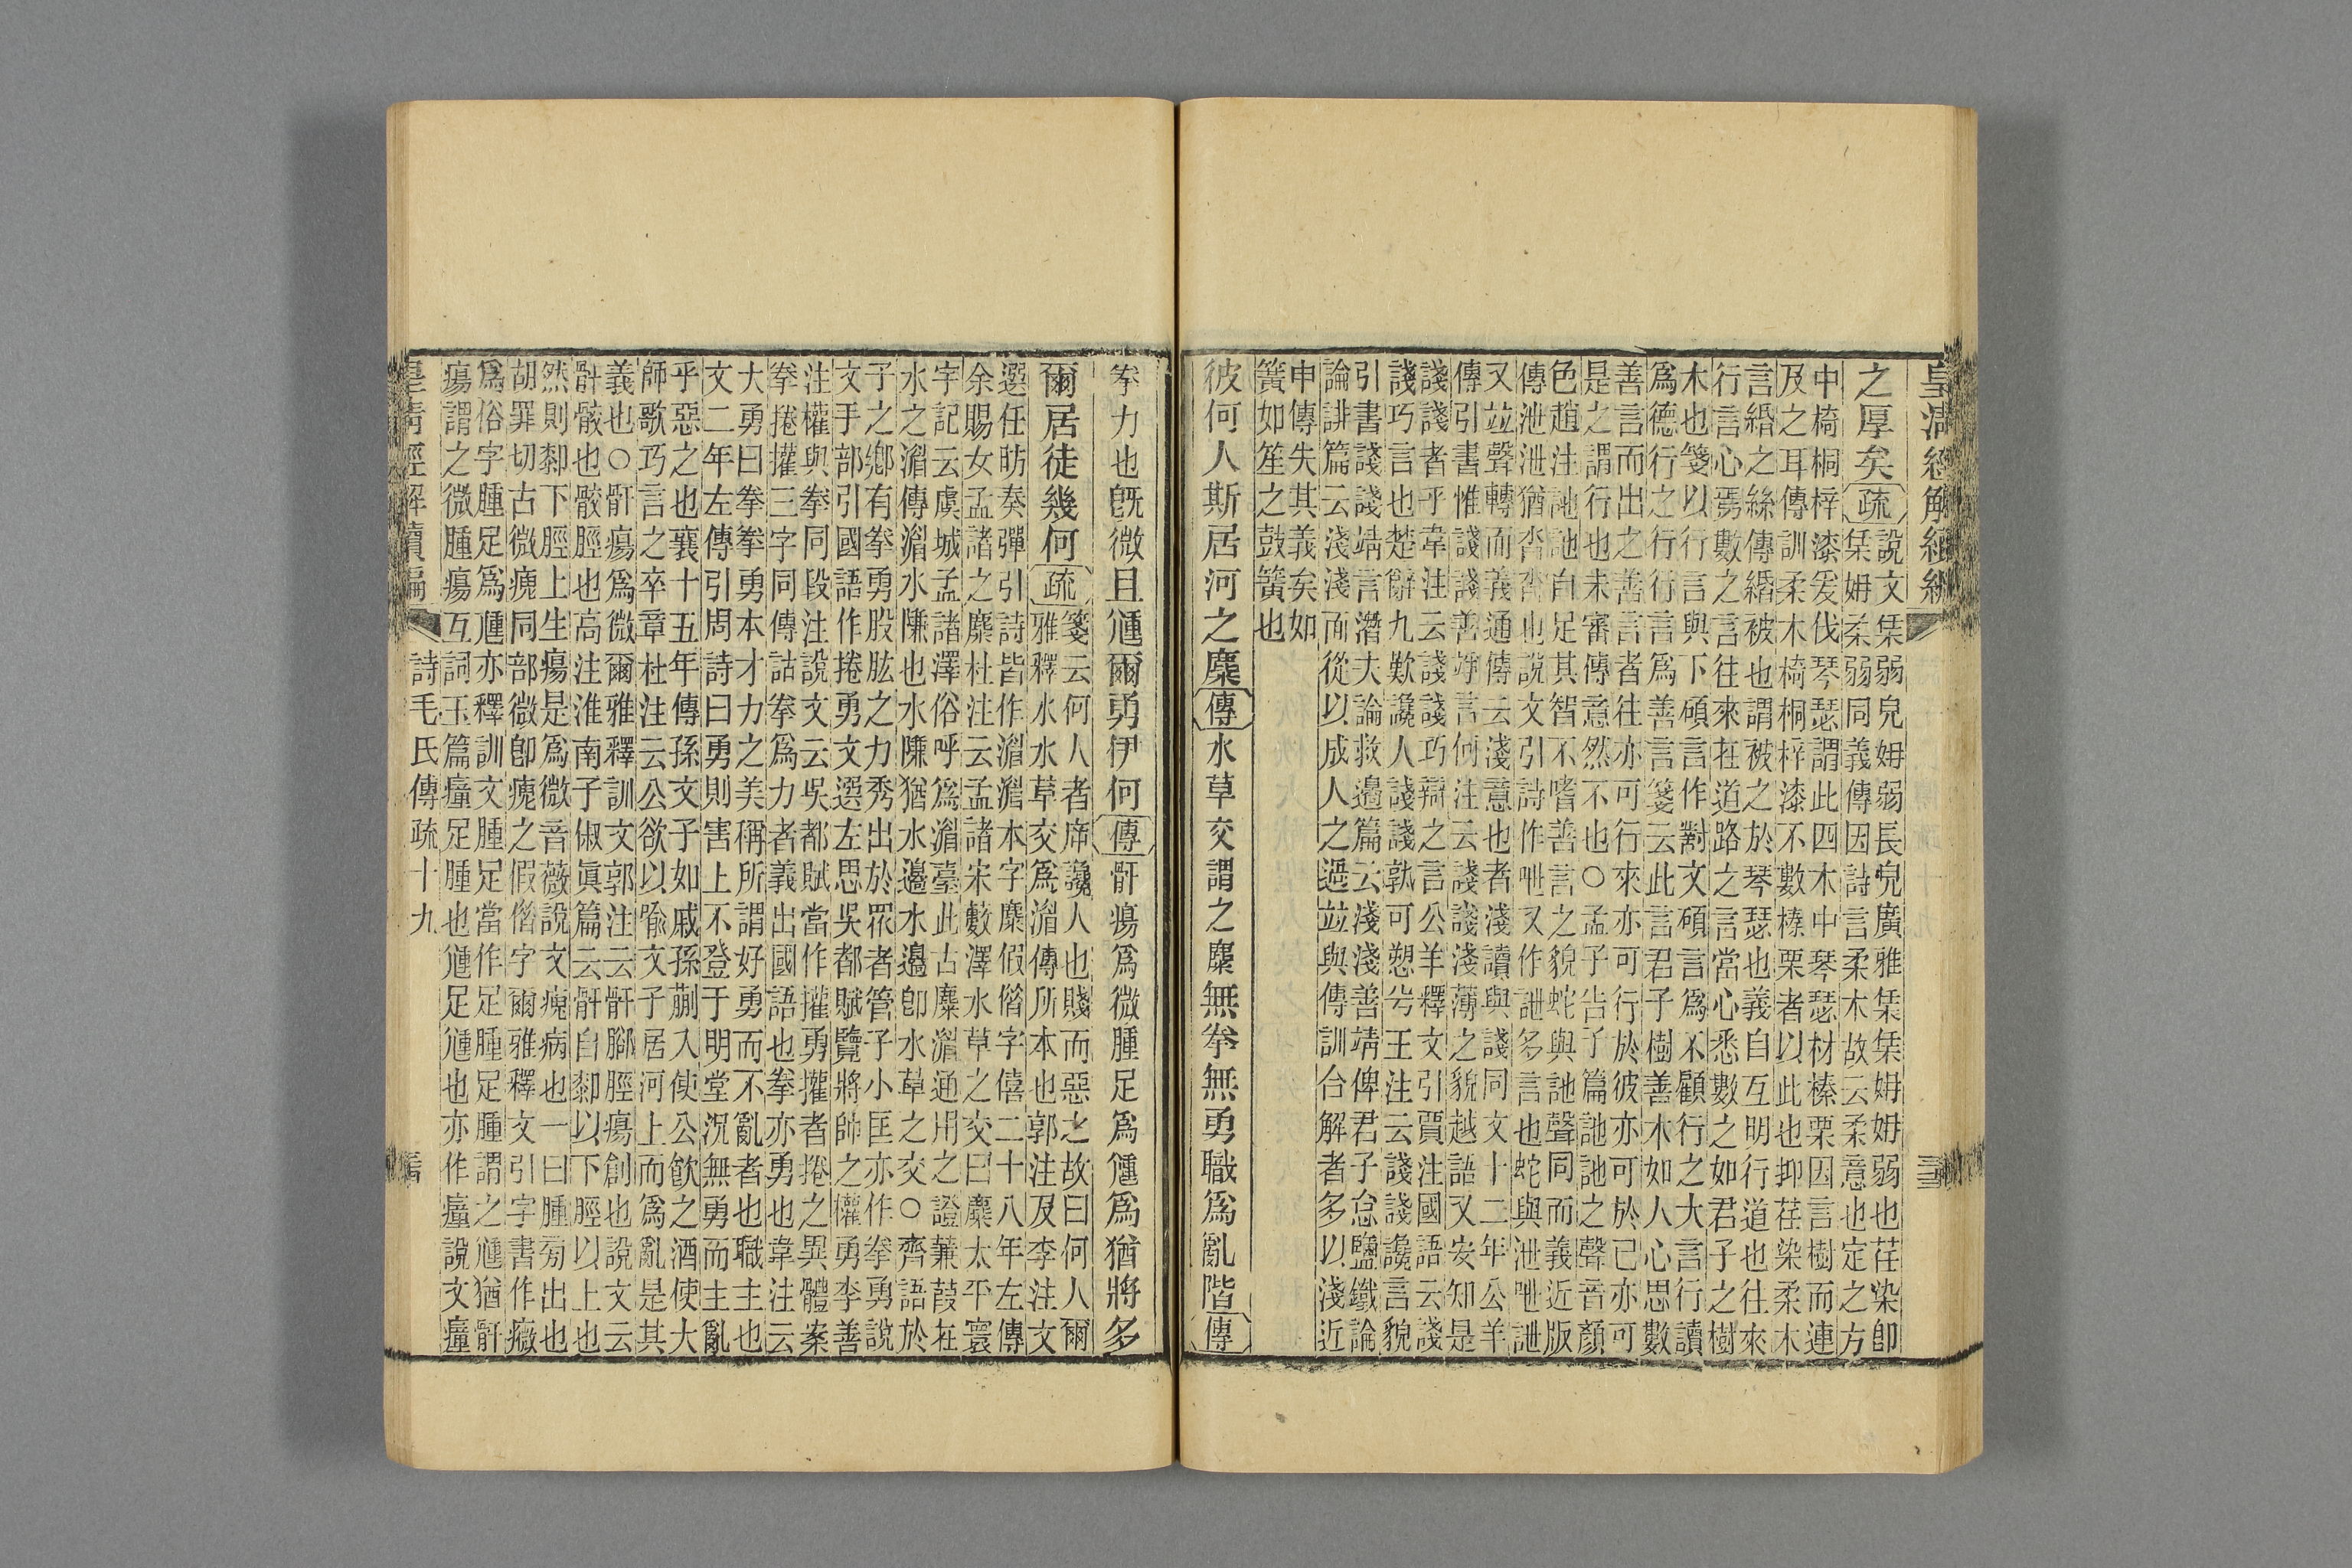 皇清經解續編
之厚矣疏說文栠弱皃姌弱長皃廣雅栠栠姌姌弱也荏染卽
栠姌柔弱同義傳因詩言柔木故云柔意也定之方
中椅桐梓漆爰伐琴瑟謂此四木中琴瑟材榛栗因言樹而連
及之耳傳訓柔木椅桐梓漆不數榛栗者以此也抑荏染柔木
言緡之絲傳緡被也謂被之於琴瑟也義自互明行道也往來
行言心焉數之言往來在道路之言當心悉數之如君子之樹
木也箋以行言與下碩言作對文碩言爲不顧行之大言行讀
爲德行之行行言爲善言箋云此言君子樹善木如人心思數
善言而出之善言者往亦可行來亦可行於彼亦可於已亦可
是之謂行也未審傳意然不也○孟子告子篇訑訑之聲音顏
色趙注訑訑自足其智不嗜善言之貌蛇與訑聲同而義近版
傳泄泄猶沓沓也說文引詩作呭又作詍多言也蛇與泄呭詍
又竝聲轉而義通傳云淺意也者淺讀與諓同文十二年公羊
傳引書惟諓諓善竫言何注云諓諓淺薄之貌越語又安知是
諓諓者乎韋注云諓諓巧辯之言公羊釋文引賈注國語云諓
諓巧言也楚辭九歎讒人諓諓孰可愬兮王注云諓諓讒言貌
引書諓諓靖言潛夫論救邊篇云淺淺善靖俾君子怠鹽鐵論
論誹篇云淺淺面從以成人之過竝與傳訓合解者多以淺近
申傳失其義矣如
簧如笙之鼓簧也
彼何人斯居河之麋傳水草交謂之麋無拳無勇職爲亂階傳
三
拳力也旣微且尰爾勇伊何傳骭瘍爲微腫足爲尰爲猶將多
爾居徒幾何疏箋云何人者席讒人也賤而惡之故曰何人爾
雅釋水水草交爲湄傳所本也郭注及李注文
選任昉奏彈引詩皆作湄湄本字麋假偺字僖二十八年左傳
余賜女孟諸之麋杜注云孟諸宋藪澤水草之交曰麋太平寰
宇記云虞城孟諸澤俗呼爲湄臺此古麋湄通用之證蒹葭在
水之湄傳湄水隒也水隒猶水邊水邊卽水草之交○齊語於
子之鄉有拳勇股肱之力秀出於眾者管子小匡亦作拳勇說
文手部引國語作捲勇文選左思吳都賦覽將帥之權勇李善
注權與拳同段注說文云吳都賦當作攉勇攉者捲之異體案
拳捲攉三字同傳詁拳爲力者義出國語也拳亦勇也韋注云
大勇曰拳拳勇本才力之美稱所謂好勇而不亂者也職主也
文二年左傳引周詩曰勇則害上不登于明堂況無勇而主亂
乎惡之也襄十五年傳孫文子如戚孫蒯入使公飮之酒使大
師歌巧言之卒章杜注云公欲以喩文子居河上而爲亂是其
義也○骭瘍爲微爾雅釋訓文郭注云骭腳脛瘍創也說文云
骭骸也骸脛也高注淮南子俶眞篇云骭自厀以下脛以上也
然則厀下脛上生瘍是爲微音薇說文瘣病也一曰腫旁出也
胡罪切古微瘣同部微卽瘣之假偺字爾雅釋文引字書作癓
爲俗字腫足爲尰亦釋訓文腫足當作足腫足腫謂之尰猶骭
瘍謂之微腫瘍互詞玉篇㿈足腫也尰足尰也亦作㿈說文㿈
皇清經解續編 詩毛氏傳疏十九